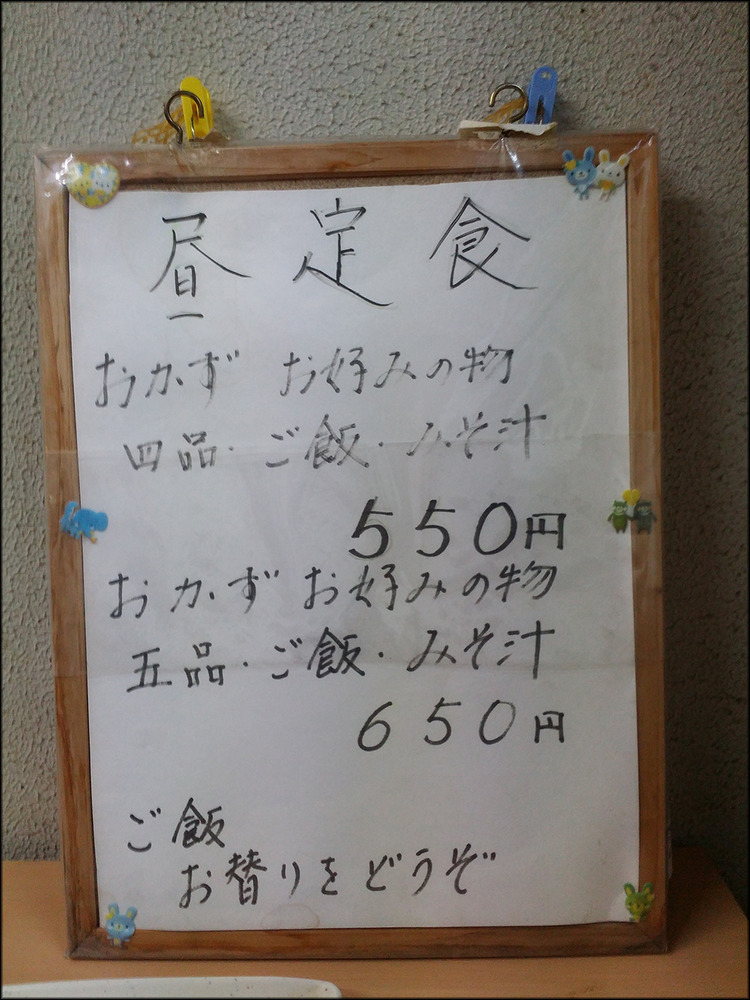 昼定食
おかず お好みの物
四品・ご飯・みそ汁
550円
おかずお好みの物
五品・ご飯・みそ汁
650円
ご飯
お替りをどうぞ